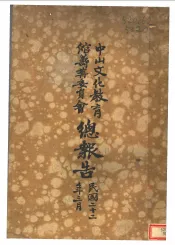 中山文化教育
館籌備委員會
總報告
民國二十二
年三月